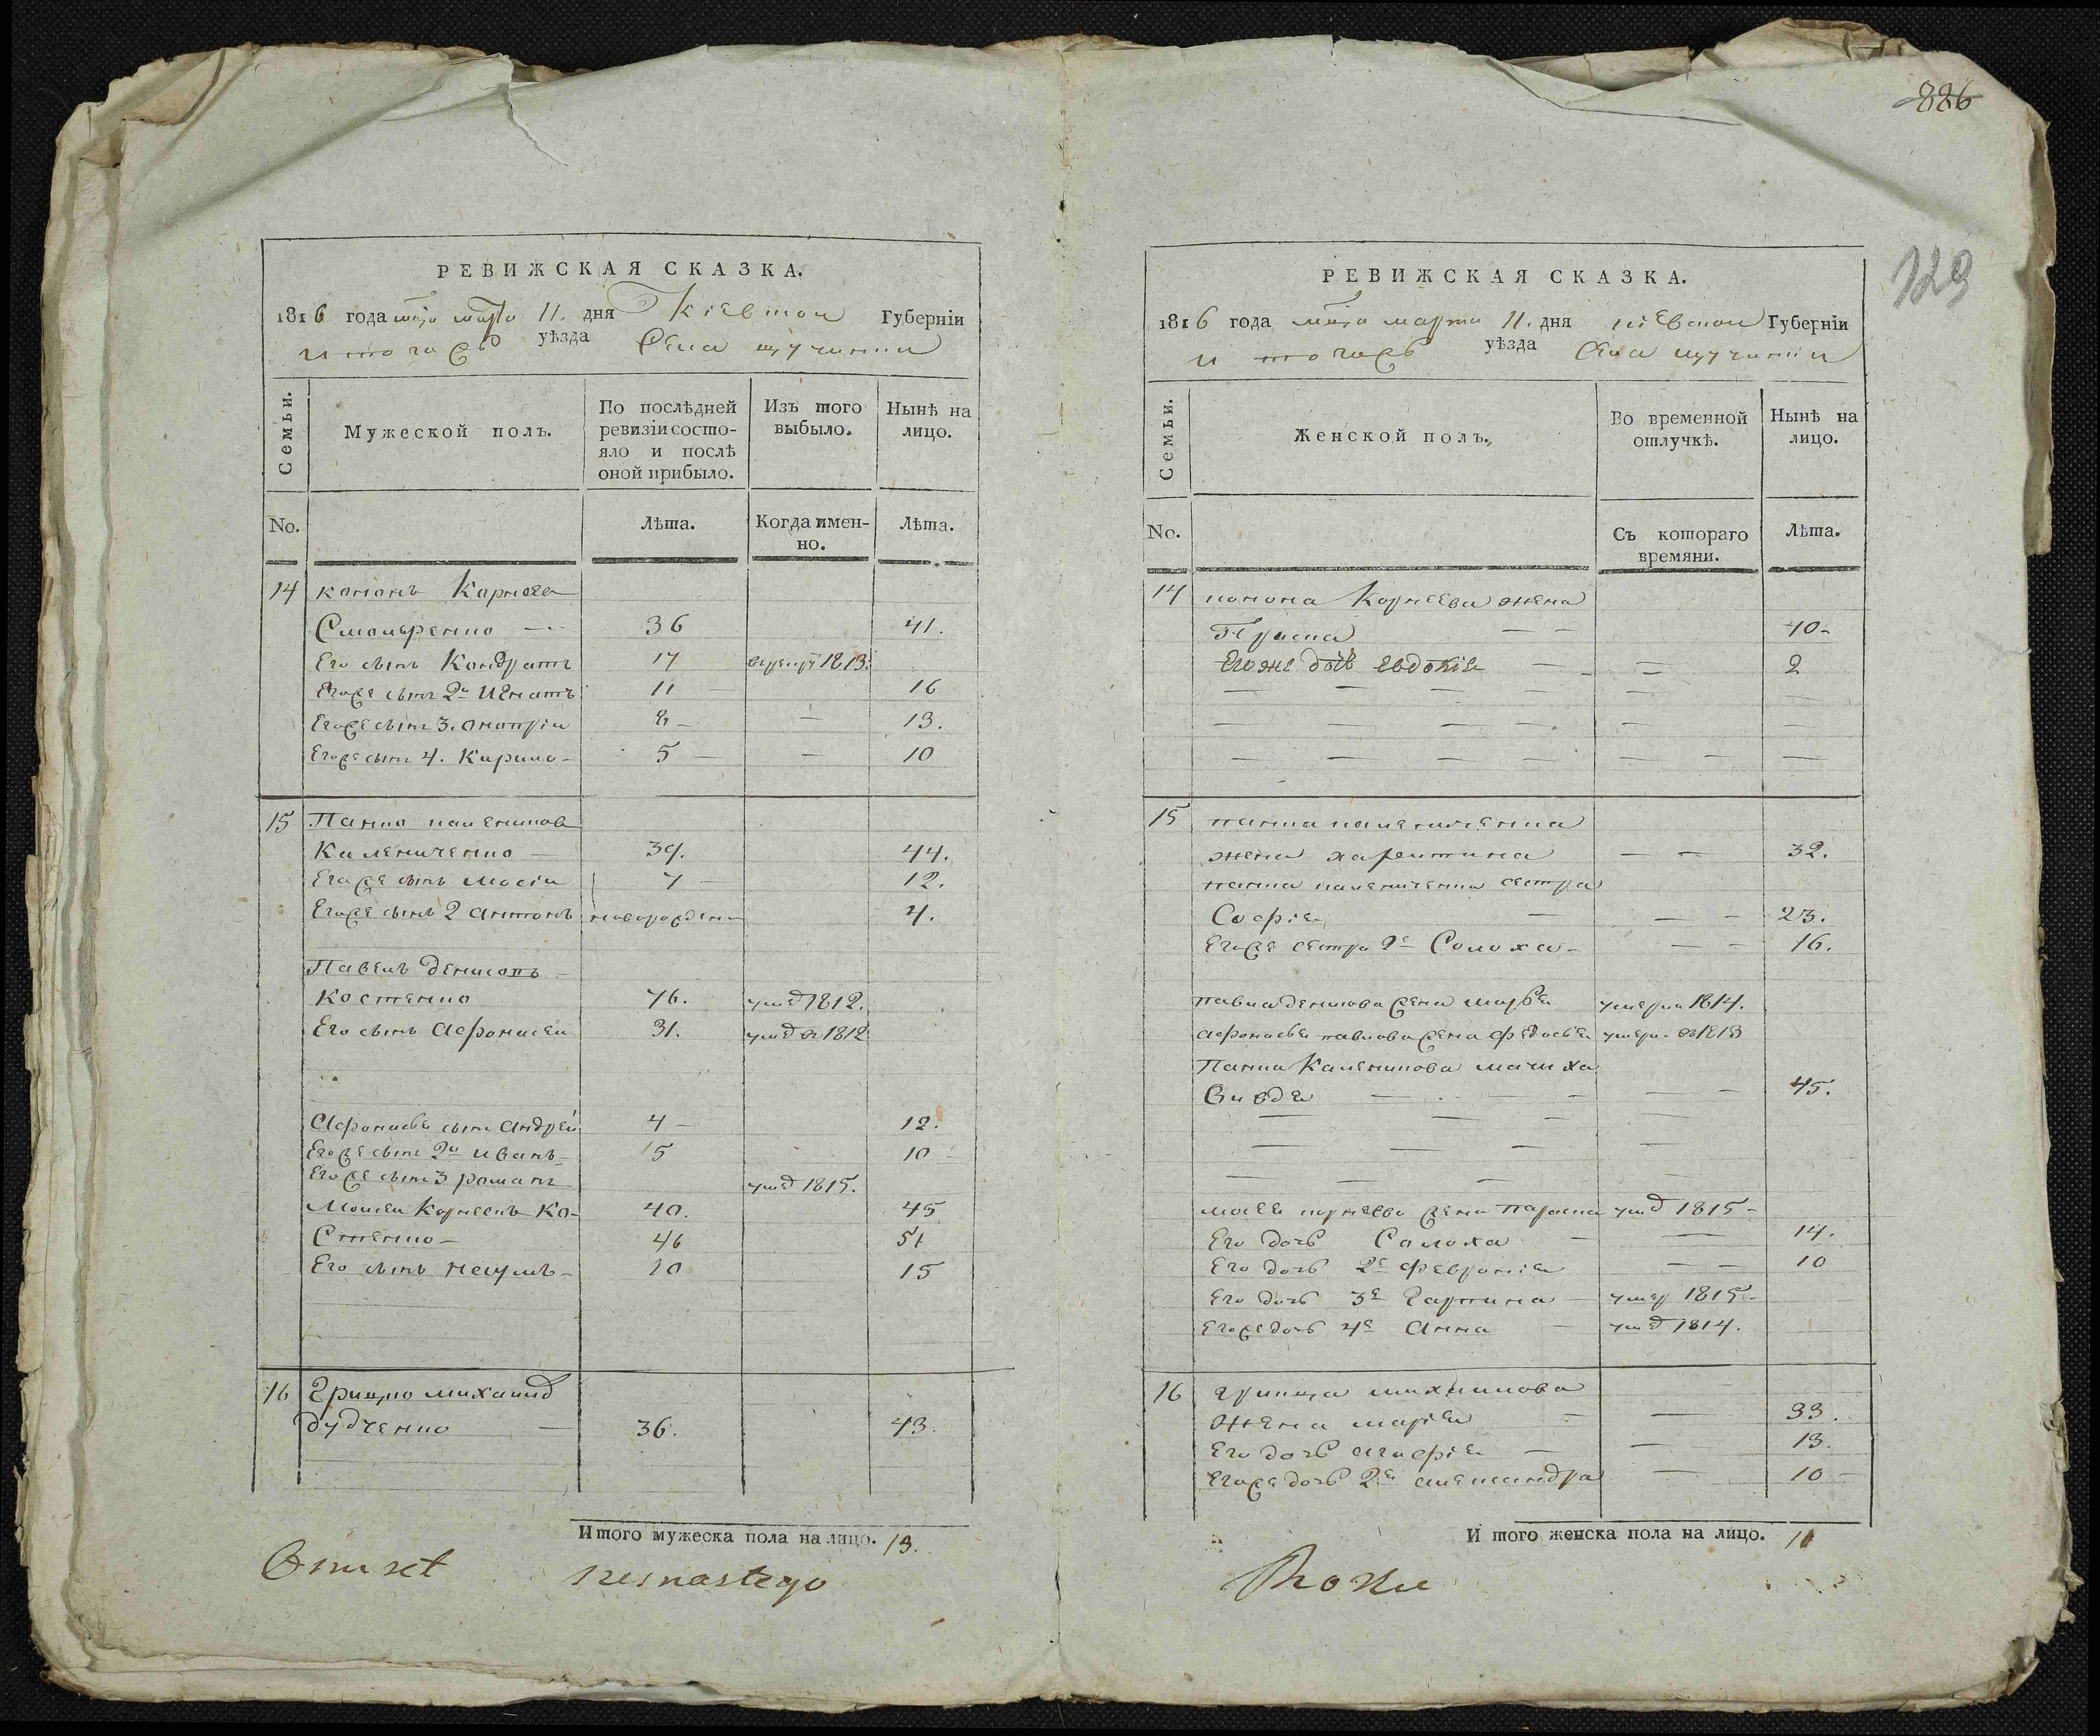 886
129
РЕВИЖСКАЯ СКАЗКА.
1816 года мца марта 11. дня Кіевской Губерніи
и тогожъ уѣзда Села щучинки
Семьи. Мужеской полъ. По послѣдней ревизіи состояло и послѣ оной прибыло. Изъ того выбыло. Нынѣ на лицо.
No. Лѣта. Когда именно. Лѣта.
14 кононъ Корнѣевъ
36 41.
Его сынъ Кондратъ 17 1813.
Егоже сынъ 2й Игнатъ 11 16
Егоже сынъ 3. онопрій 8 — 13.
Егоже сынъ 4. Кирило 5 — 10
15 Панко калениковъ
Калениченко 39. 44.
Егоже сынъ Мосій 7 12.
Егоже сынъ 2 антонъ новорожденъ 4.
Павелъ денисовъ
Костенко 76. умре 1812.
Его сынъ Афонасей 31. умре въ 1812
Афонасія сынъ Андрей 7 12.
Егоже сынъ 2й иванъ 5 10
Егоже сынъ 3 романъ умре 1815.
Мосей Корнеевъ Ко- 40. 45
Стенко 46 51
Его сынъ Наумъ 10 15
16 Грицко михаило
дудченко 36. 43.
Итого мужеска пола на лицо. 13.
Omset szesnastego
РЕВИЖСКАЯ СКАЗКА.
1816 года мца марта 11. дня кіевской Губерніи
и тогожъ уѣзда села щучинки
Семьи. Женской полъ. Во временной отлучкѣ. Нынѣ на лицо.
No. Съ котораго времяни. Лѣта.
14 конона Корнеева жена
Приска — — 40
Егоже дочь евдокія — — 2
15 панка калениченка
жена харитина — — 32.
панка калениченка сестра
Софія — — — 23.
Егоже сестра 2я Солоха — — 16.
павла денисова жена марья умерла 1814.
афонасія павлова жена федосья умерла въ 1813
Панка Каленикова мачиха
Вивдя — — 45.
мосея корнеева жена параска умре 1815
Его дочь Солоха — 14.
Его дочь 2я февронія — — 10
Его дочь 3я Гарпина умер 1815
Егоже дочь 4я Анна умре 1814.
16 грицка михаилова
жена марія — — 33.
Его дочь агафія — — 13.
Егоже дочь 2я александра — 10
И того женска пола на лицо. 11
Roku